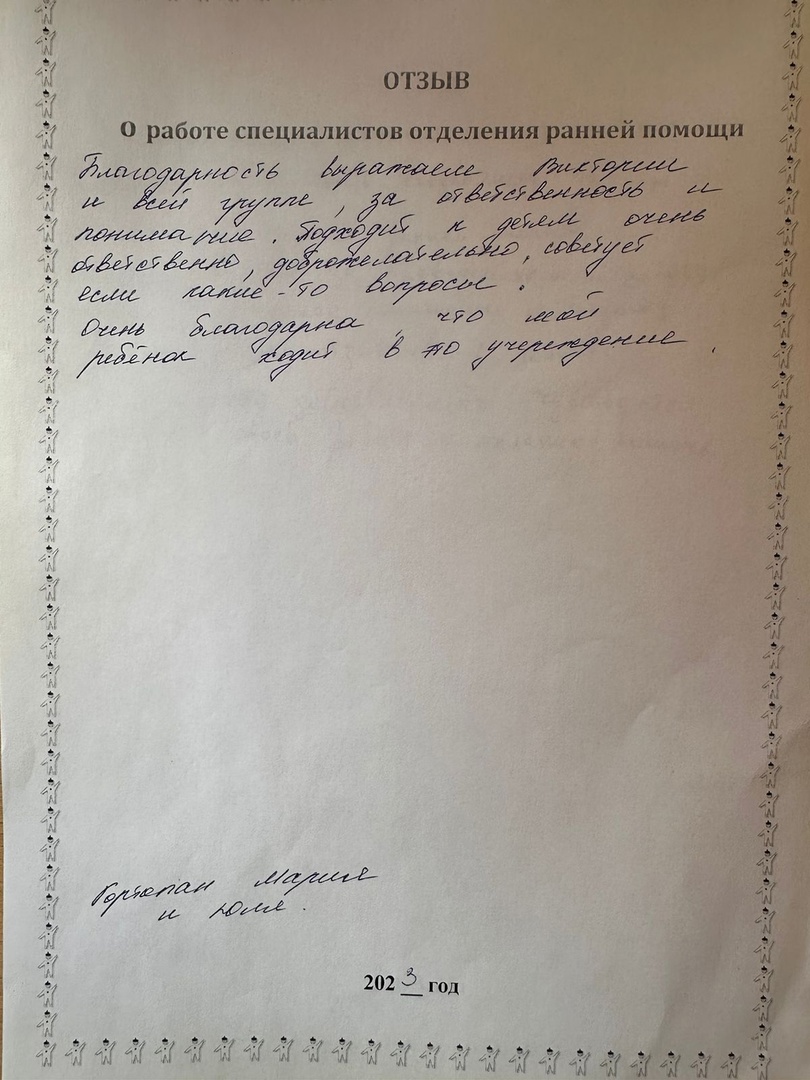 ОТЗЫВ
О работе специалистов отделения ранней помощи
Благодарность выражаем Виктории
и всей группе, за ответственность и
понимание. Подходит к детям очень
ответственно, доброжелательно, советует
если какие-то вопросы.
Очень благодарна, что мой
ребёнок ходит в это учереждение.
Мария
и Юля.
2023 год